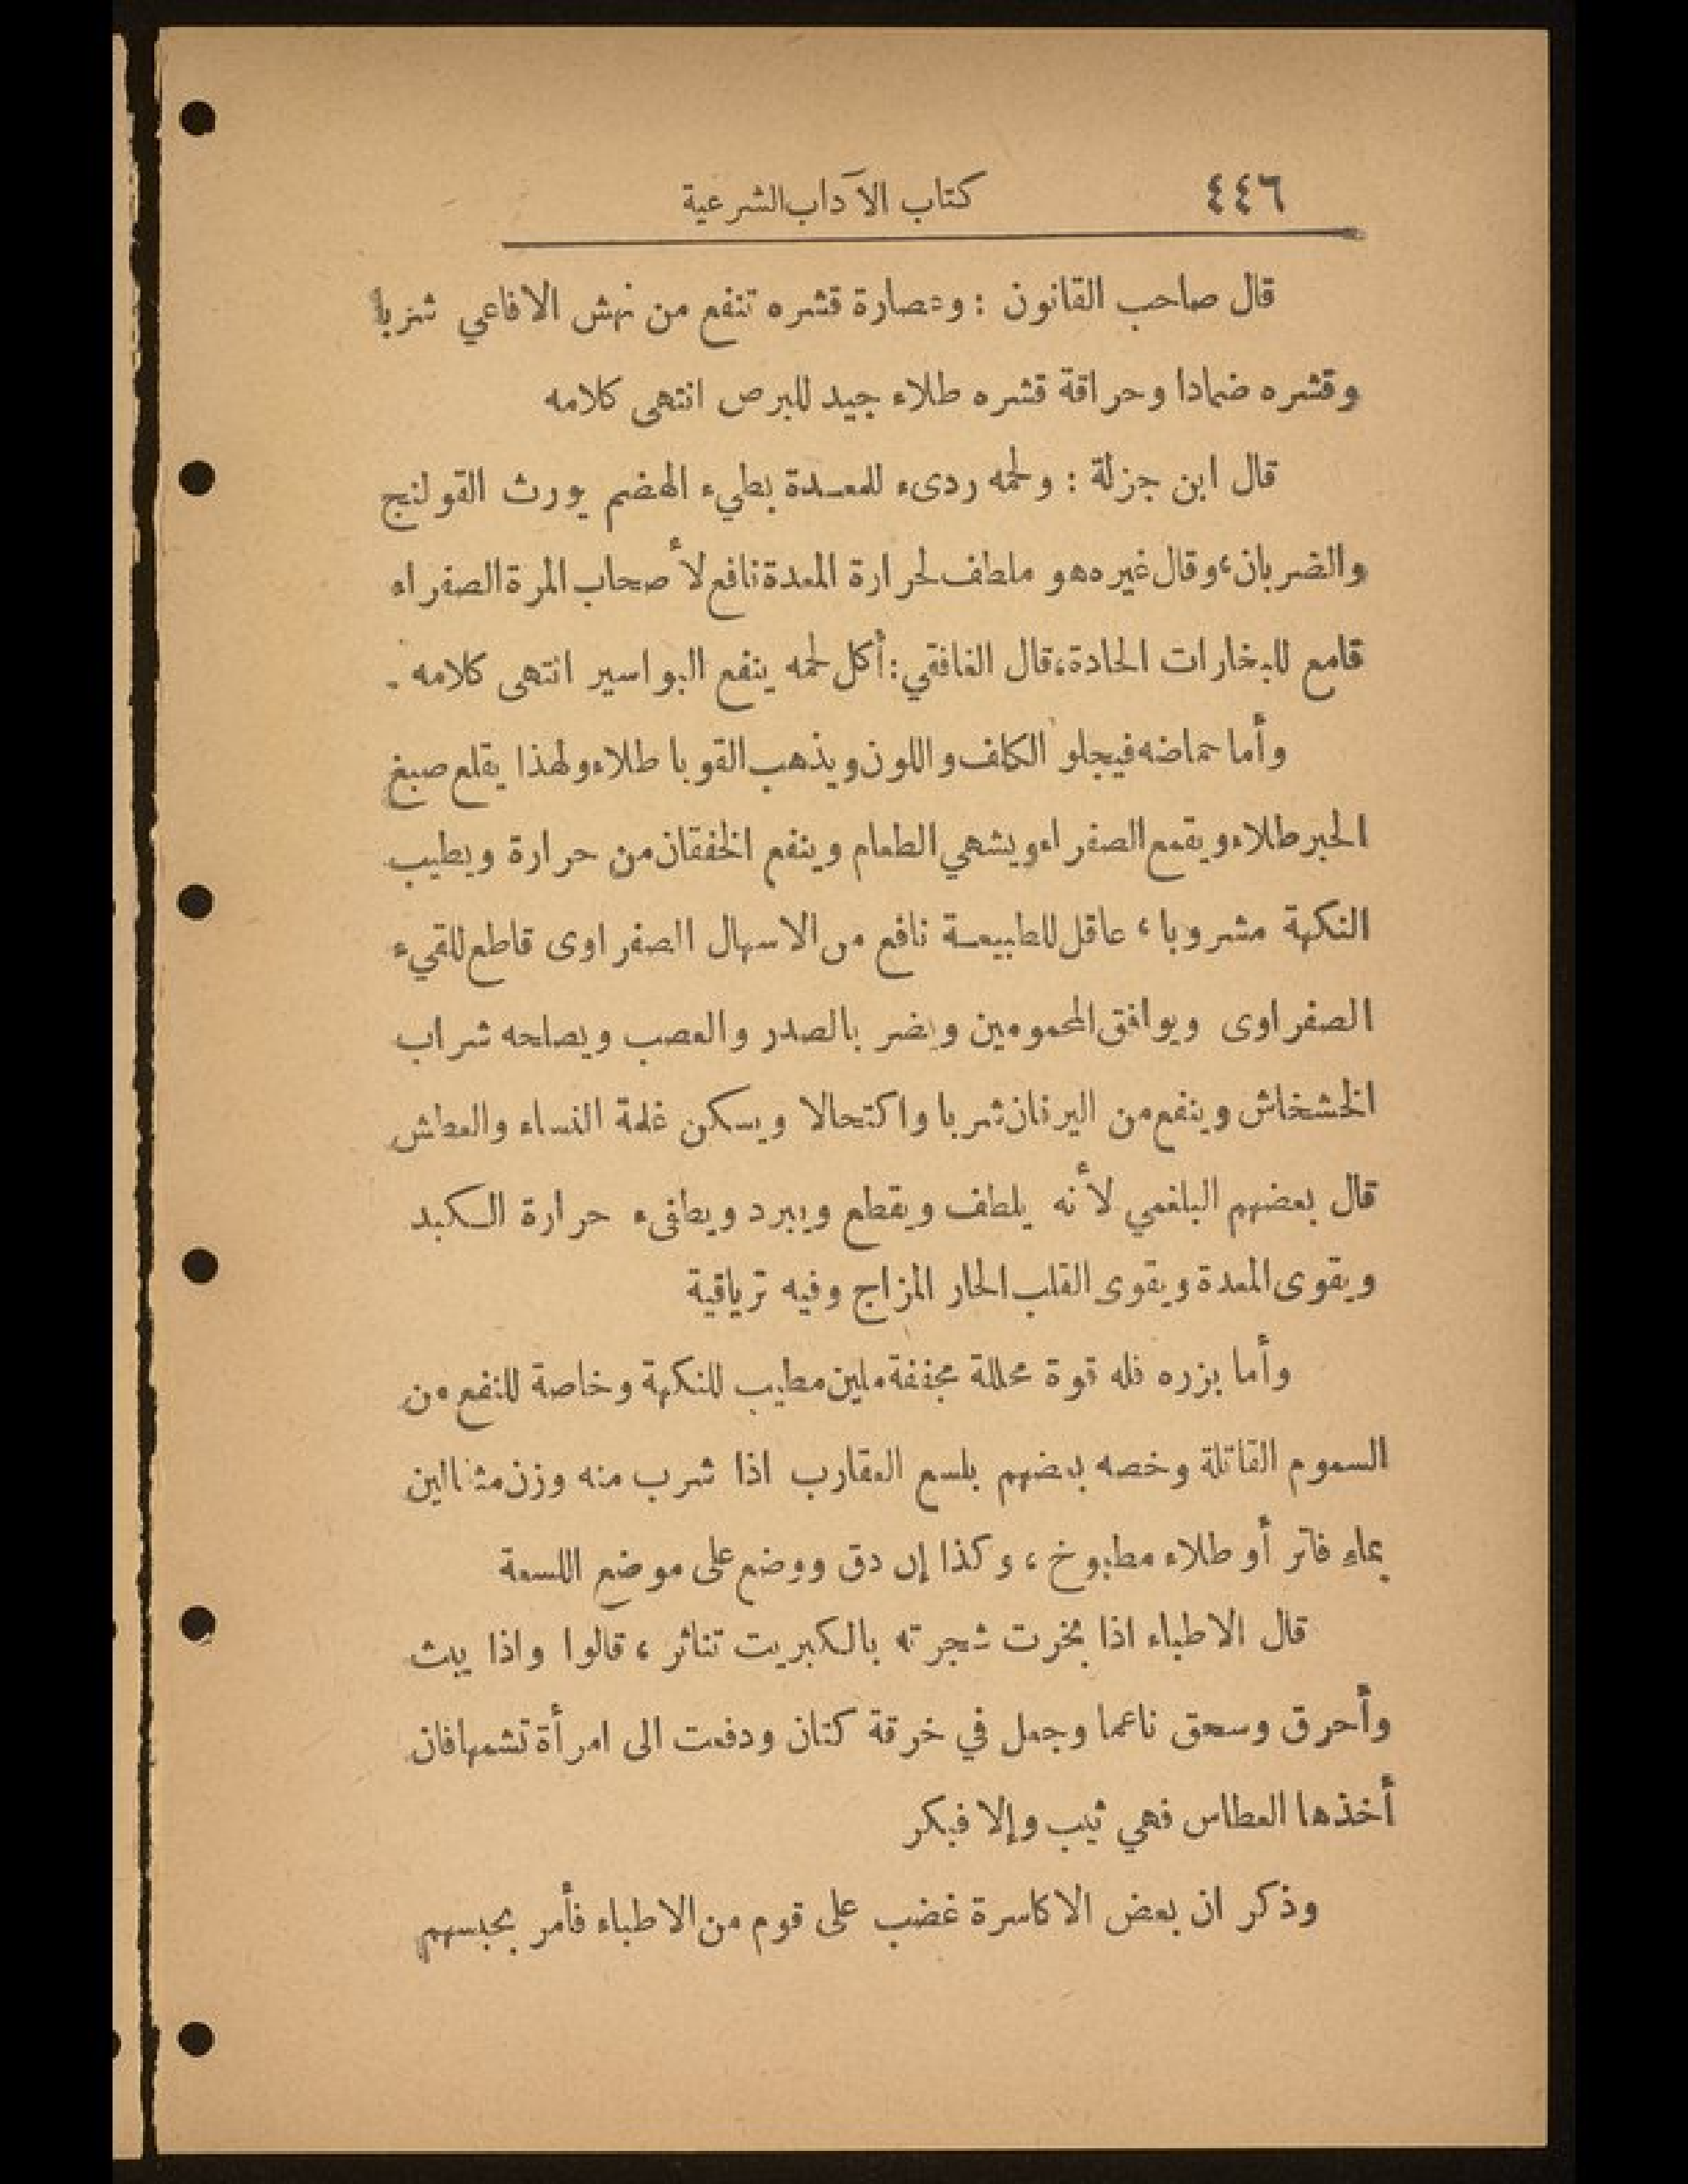 ٤٤٦ كتاب الآداب الشرعية
قال صاحب القانون : وعصارة قشره تنفع من نهش الافاعي شربا
وقشره ضمادا وحراقة قشره طلاء جيد للبرص انتهى كلامه
قال ابن جزلة : ولحمه ردىء للمعدة بطيء الهضم يورث القولنج
والضربان، وقال غيره هو ملطف لحرارة المعدة نافع لأصحاب المرة الصفراء
قامع للبخارات الحادة، قال الغافقي: أكل لحمه ينفع البواسير انتهى كلامه .
وأما حماضه فيجلو الكلف واللون ويذهب القوبا طلاء ولهذا يقلع صبغ
الحبر طلاء ويقمع الصفراء ويشهي الطعام وينفع الخفقان من حرارة ويطيب
النكهة مشروبا، عاقل للطبيعة نافع من الاسهال الصفراوى قاطع للقيء
الصفراوى ويوافق المحمومين ويضر بالصدر والعصب ويصلحه شراب
الخشخاش وينفع من اليرقان شربا واكتحالا ويسكن غلمة النساء والعطش
قال بعضهم البلغمي لأنه يلطف ويقطع ويبرد ويطفىء حرارة الكبد
ويقوى المعدة ويقوى القلب الحار المزاج وفيه ترياقية
وأما بزره فله قوة محللة مجففة ملين مطيب للنكهة وخاصة للنفع من
السموم القاتلة وخصه بعضهم بلسع العقارب اذا شرب منه وزن مثقالين
بماء فاتر أو طلاء مطبوخ، وكذا إن دق ووضع على موضع اللسعة
قال الاطباء اذا بخرت شجرته بالكبريت تناثر، قالوا واذا يبث
وأحرق وسحق ناعما وجعل في خرقة كتان ودفعت الى امرأة تشمها فان
أخذها العطاس فهي ثيب وإلا فبكر
وذكر ان بعض الاكاسرة غضب على قوم من الاطباء فأمر بحبسهم